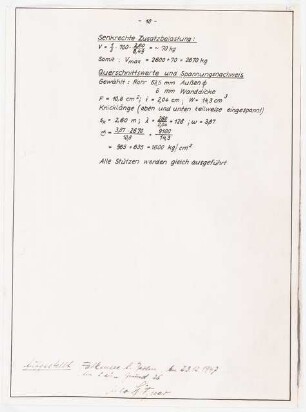 - 10 -
Senkrechte Zusatzbelastung:
V = 700 · = ~ 70 kg
Somit: Vmax = 2600 + 70 = 2670 kg
Querschnittswerte und Spannungsnachweis
Gewählt: Rohr 63,5 mm Außen ϕ
6 mm Wanddicke
F = 10,8 cm²; i = 2,04 cm; W = 14,3 cm³
Knicklänge (oben und unten teilweise eingespannt)
sk = 2,60 m; λ = 260/2,04 = 128; ω = 3,87
σ = 3,87 · 2670/10,8 + 9100/14,3
= 965 + 635 = 1600 kg/cm²
Alle Stützen werden gleich ausgeführt
Aufgestellt